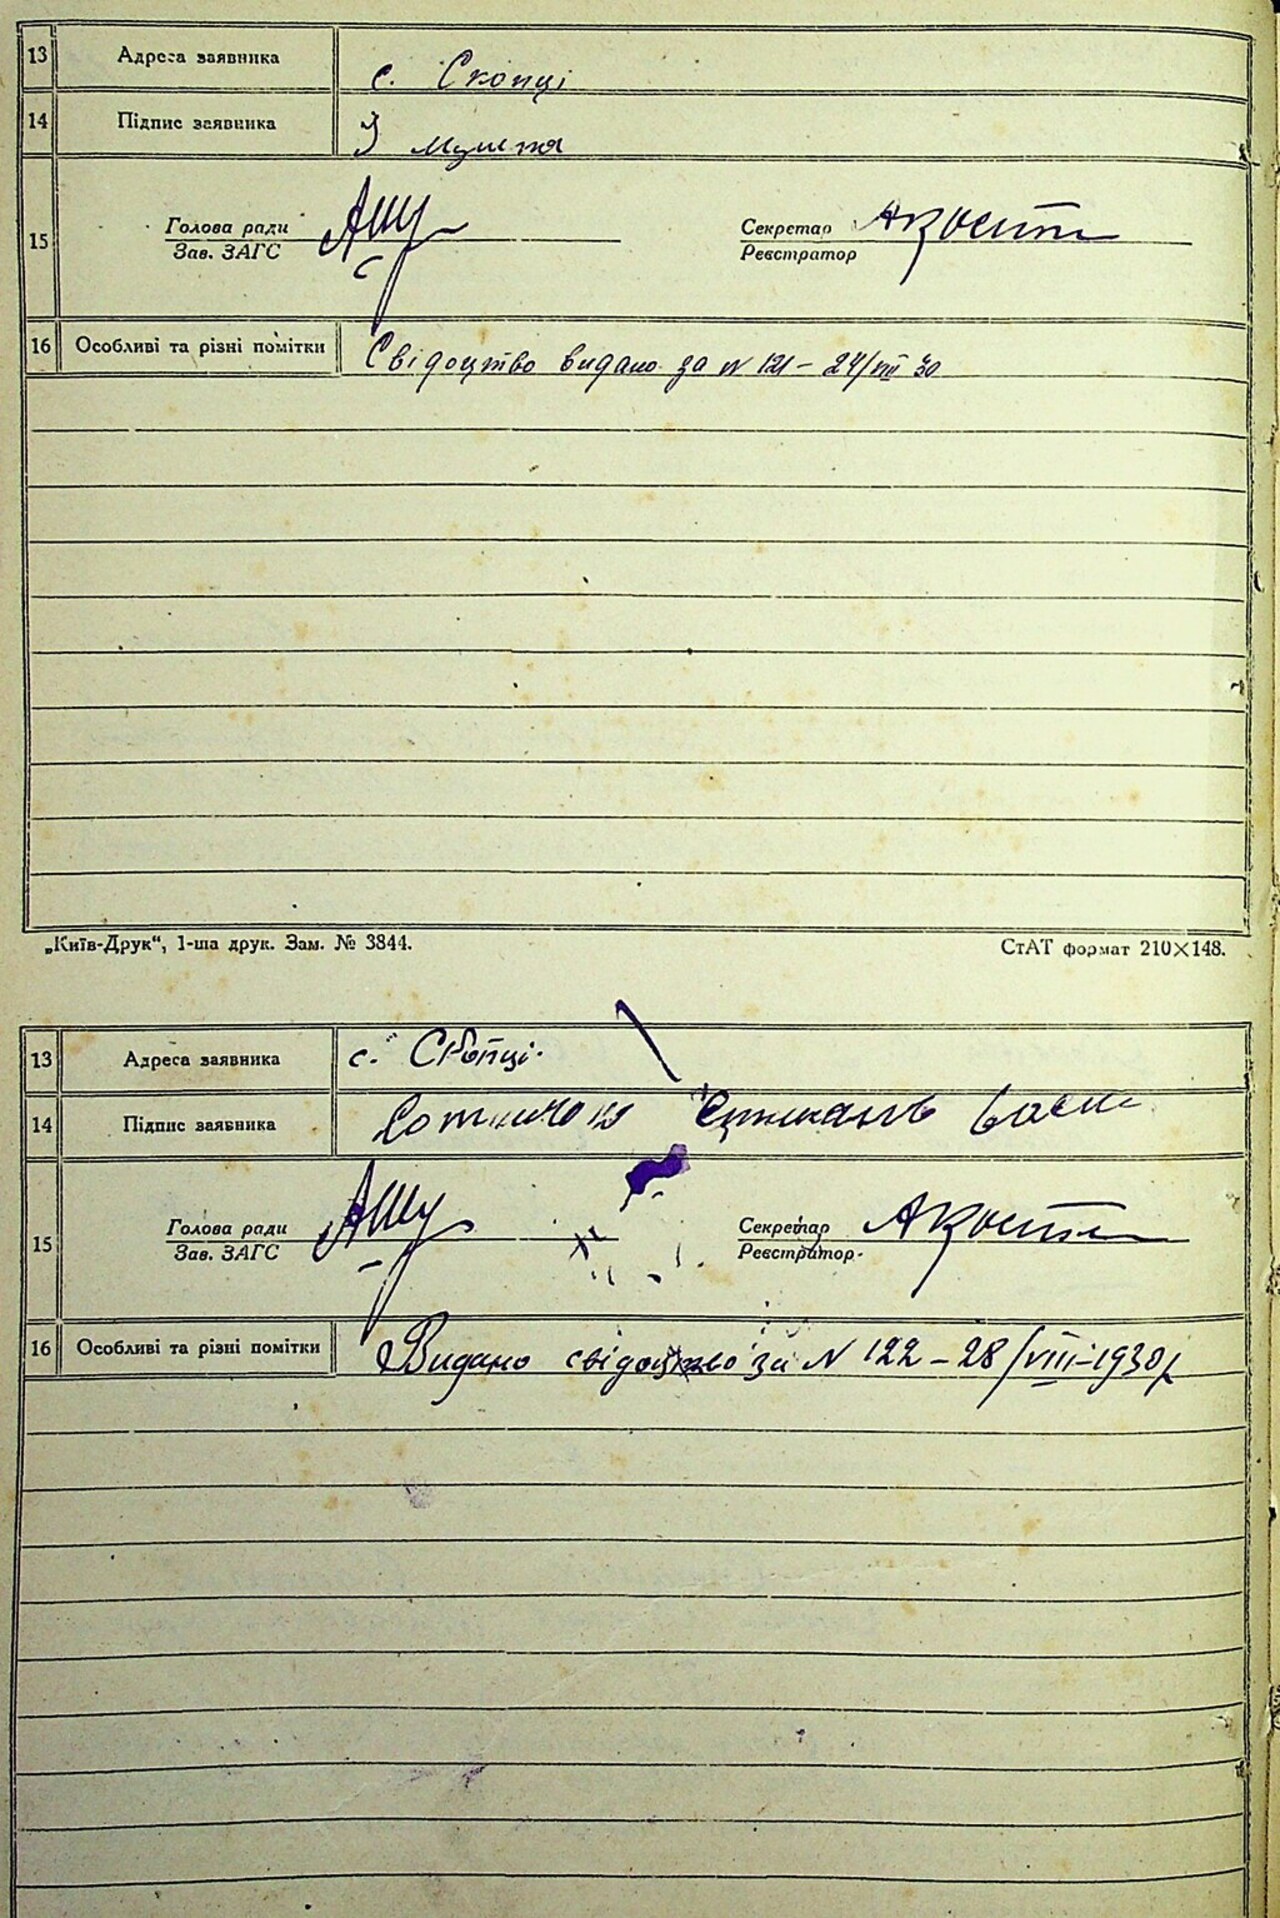 13 Адреса заявника с. Скопці
14 Підпис заявника
15 Голова ради Секретар
Зав. ЗАГС Реєстратор
16 Особливі та різні помітки Свідоцтво видано за N 121 – 24/VIII 30
„Київ-Друк“, 1-ша друк. Зам. № 3844. СтАТ формат 210×148.
13 Адреса заявника с. Скопці.
14 Підпис заявника
15 Голова ради Секретар
Зав. ЗАГС Реєстратор
16 Особливі та різні помітки Видано свідоцтво за N 122 – 28/VIII–1930р